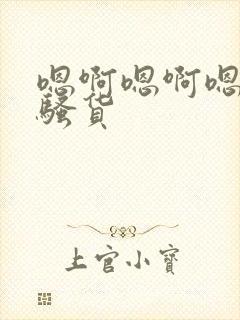 嗯啊嗯啊嗯
骚货
上官小寶